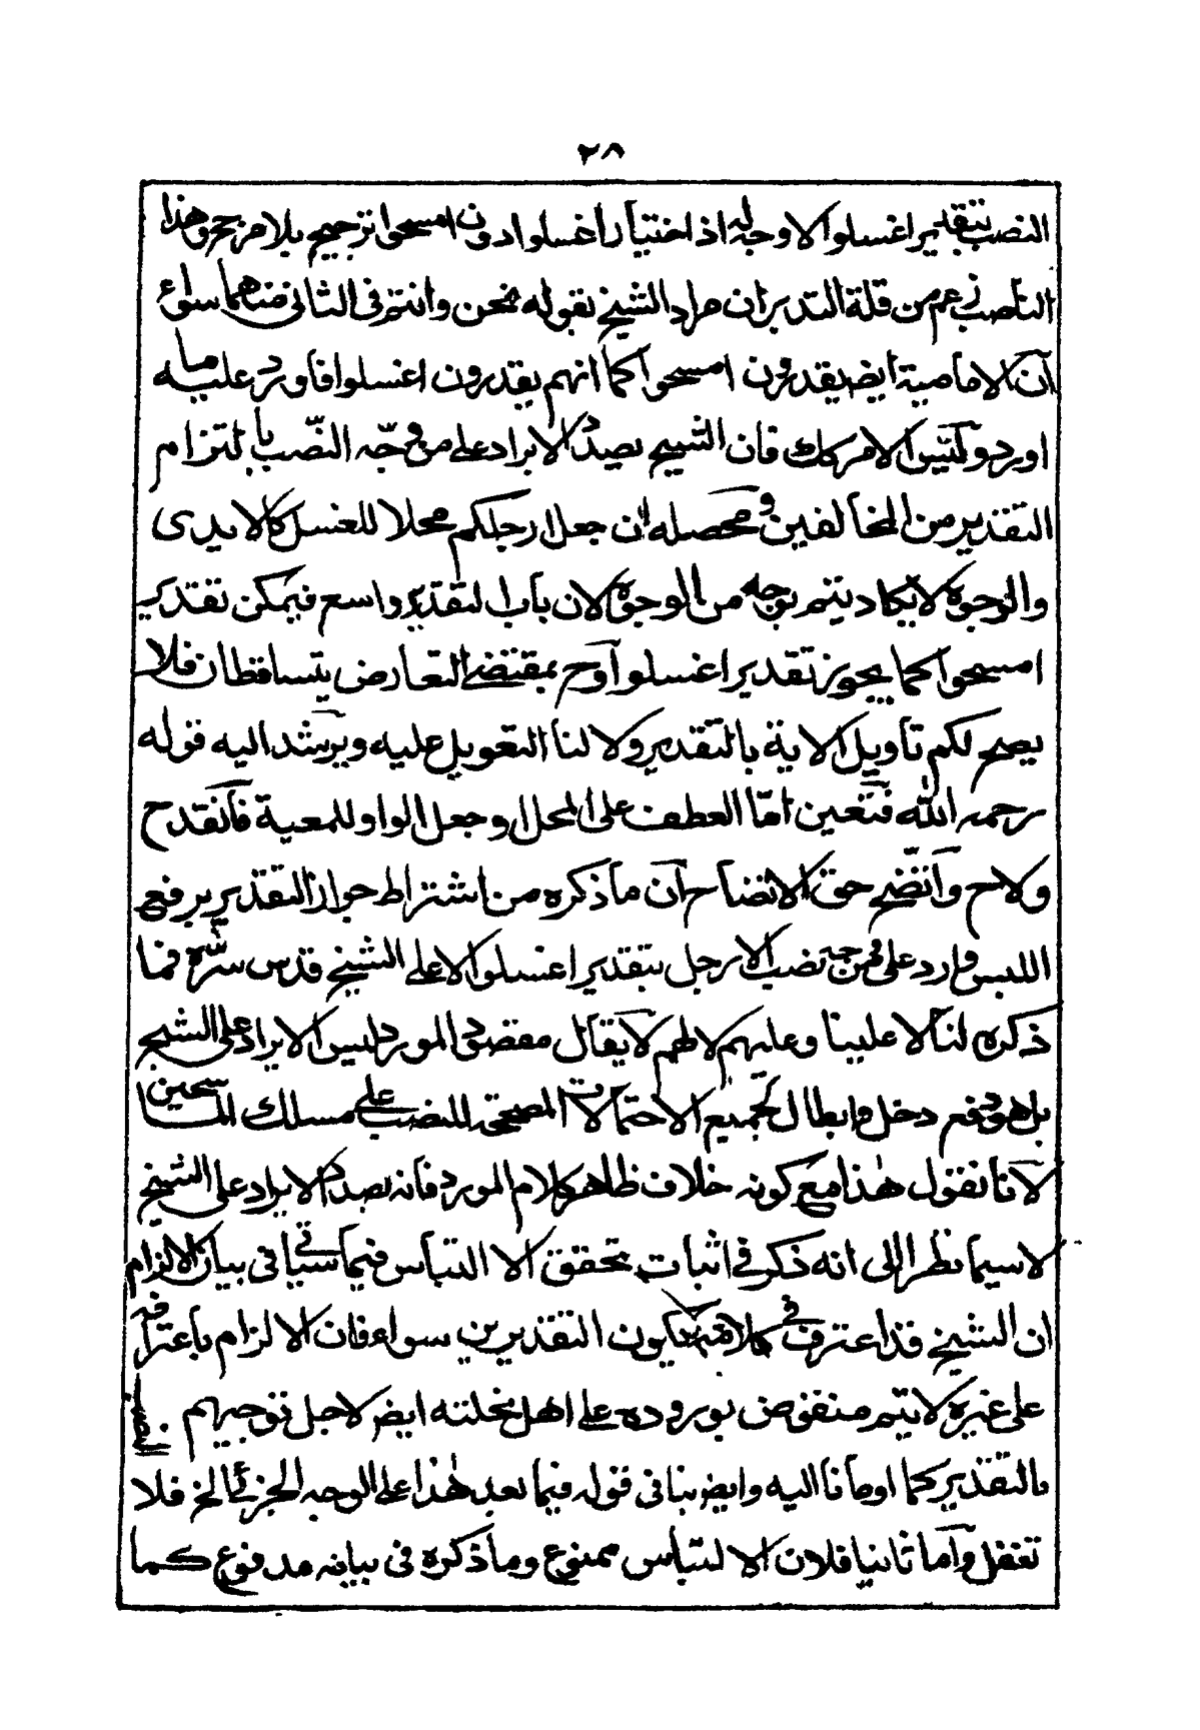 ٢٨
النصب بتقدير اغسلوا لا وجه له اذ اختيار اغسلوا دون امسحوا ترجيح بلا مرجح وهذا
الناصب زعم من قلة التدبر ان مراد الشيخ بقوله فنحن وانتم فى الثانى سواء
ان الامامية ايض يقدرون امسحوا كما انهم يقدرون اغسلوا فاورد عليه ما
اورد وليس الامر كك فان الشيخ بصدد الايراد على من وجّه النّصب بالتزام
التقدير من المخالفين ومحصله ان جعل ارجلكم محلا للغسل كالايدى
والوجوه لا يكاد يتم بوجه من الوجوه لان باب التقدير واسع فيمكن تقدير
امسحوا كما يجوز تقدير اغسلوا وح بمقتضى التعارض يتساقطان فلا
يصح لكم تاويل الاية بالتقدير ولا لنا التعويل عليه ويرشد اليه قوله
رحمه الله فتعين امّا العطف على المحل او جعل الواو للمعية فانقدح
ولاح واتّضح حق الاتضاح ان ما ذكره من اشتراط جواز التقدير برفع
اللبس وارد على من وجه نصب الارجل بتقدير اغسلوا لا على الشيخ قدس سّره فما
ذكره لنا لا علينا وعليهم لا لهم لا يقال مقصود المورد ليس الايراد على الشيخ
بل هو دفع دخل وابطال لجميع الاحتمالات المصححة للنصب على مسلك الماسحين
لانا نقول هذا مع كونه خلاف ظاهر كلام المورد فانه بصدد الايراد على الشيخ
لاسيما نظرا الى انه ذكر فى اثبات تحقق الالتباس فيما سياتى فى بيان الالزام
ان الشيخ قد اعترف فى كلامه بكون التقديرين سواء فان الالزام باعترافه
على غيره لا يتم منقوض بوروده على اهل نحلته ايض لاجل توجيههم النصب
بالتقدير كما اومأنا اليه وايض ينافى قوله فيما بعد هذا على الوجه الجزئى الخ فلا
تغفل واما ثانيا فلان الالتباس ممنوع وما ذكره فى بيانه مدفوع كما